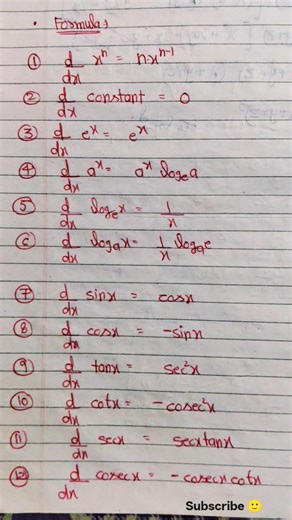 • Formulas
① d/dx xⁿ = n·xⁿ⁻¹
② d/dx constant = 0
③ d/dx eˣ = eˣ
④ d/dx aˣ = aˣ logₑa
⑤ d/dx logₑx = 1/x
⑥ d/dx logₐx = 1/x logₐe
⑦ d/dx sinx = cosx
⑧ d/dx cosx = -sinx
⑨ d/dx tanx = sec²x
⑩ d/dx cotx = -cosec²x
⑪ d/dx secx = secxtanx
⑫ d/dx cosecx = -cosecx cotx
Subscribe 🙂